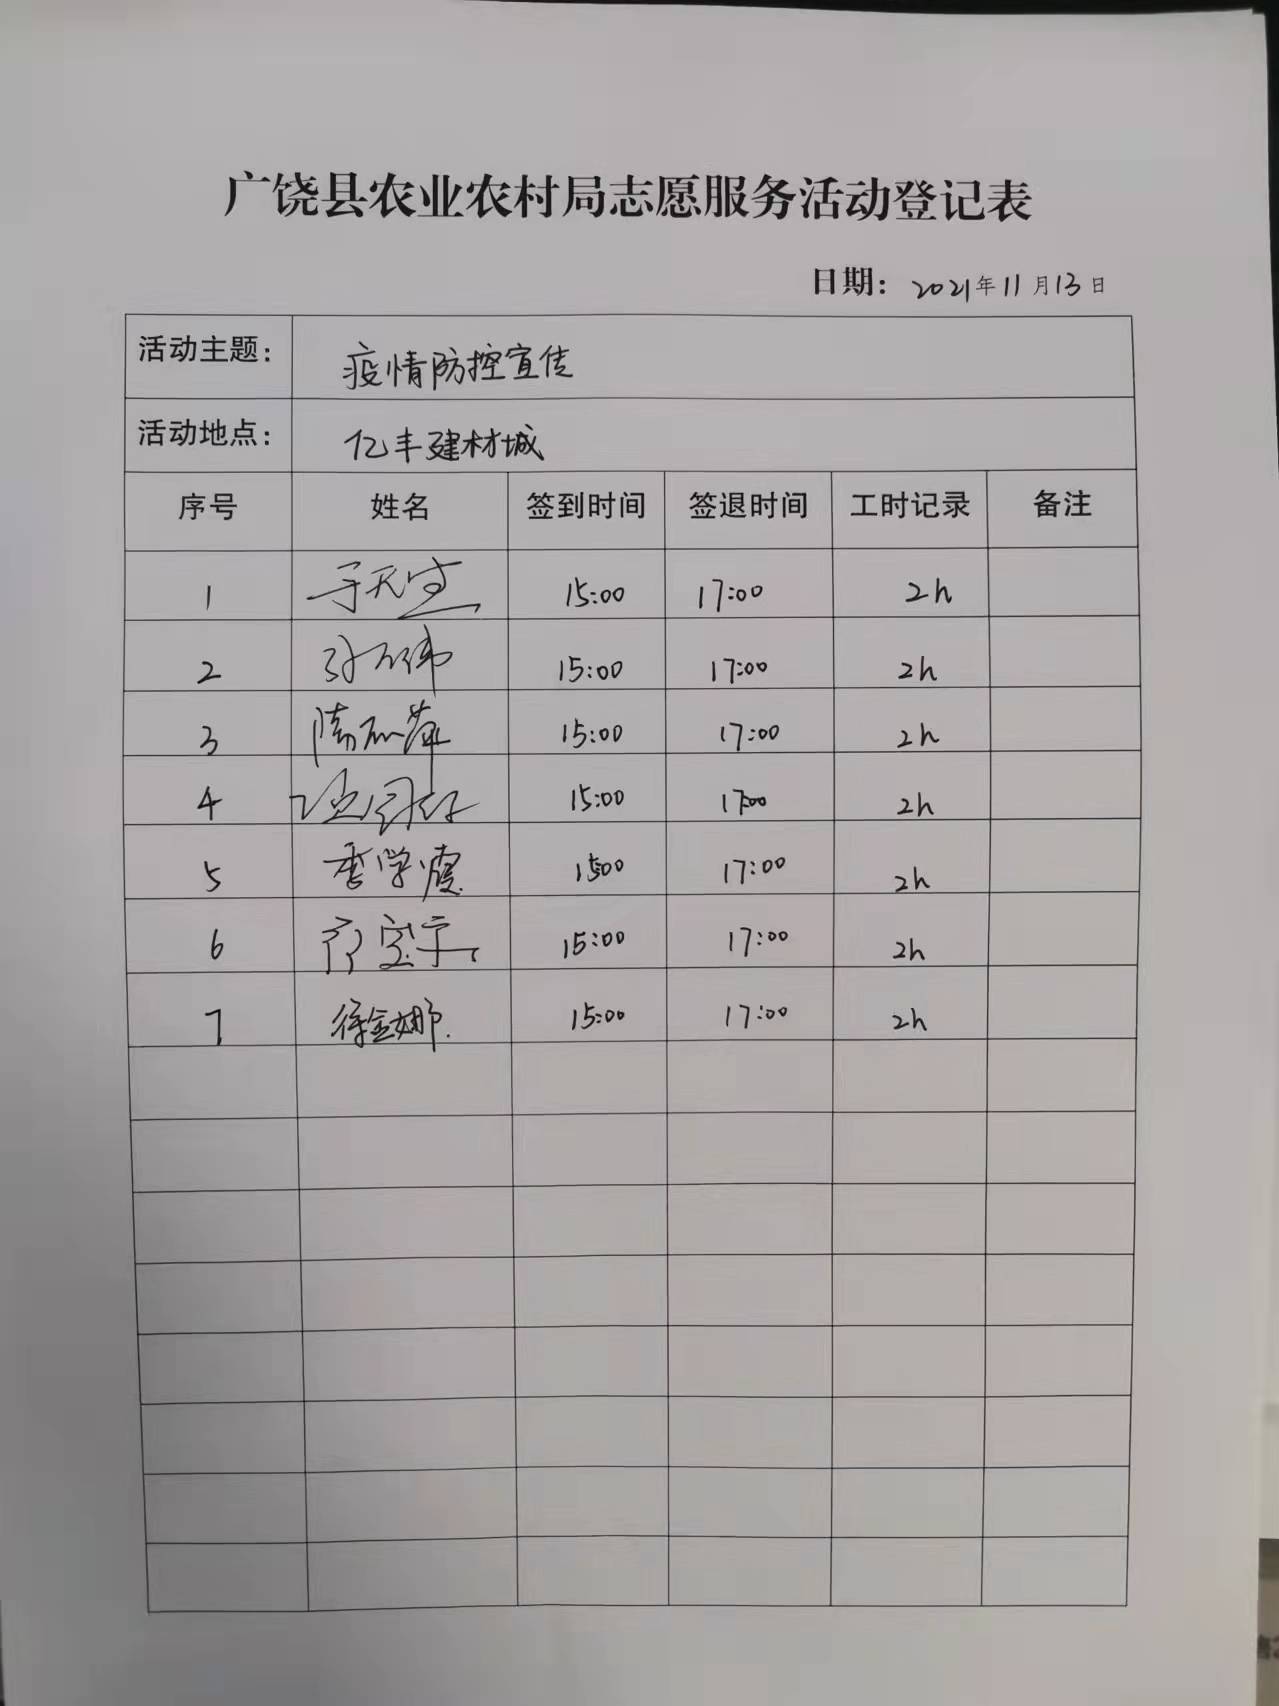 广饶县农业农村局志愿服务活动登记表
日期: 2021年11月13日
活动主题: 疫情防控宣传
活动地点: 亿丰建材城
序号 姓名 签到时间 签退时间 工时记录 备注
1 15:00 17:00 2h
2 15:00 17:00 2h
3 15:00 17:00 2h
4 15:00 17:00 2h
5 李学霞 15:00 17:00 2h
6 15:00 17:00 2h
7 徐金娜 15:00 17:00 2h